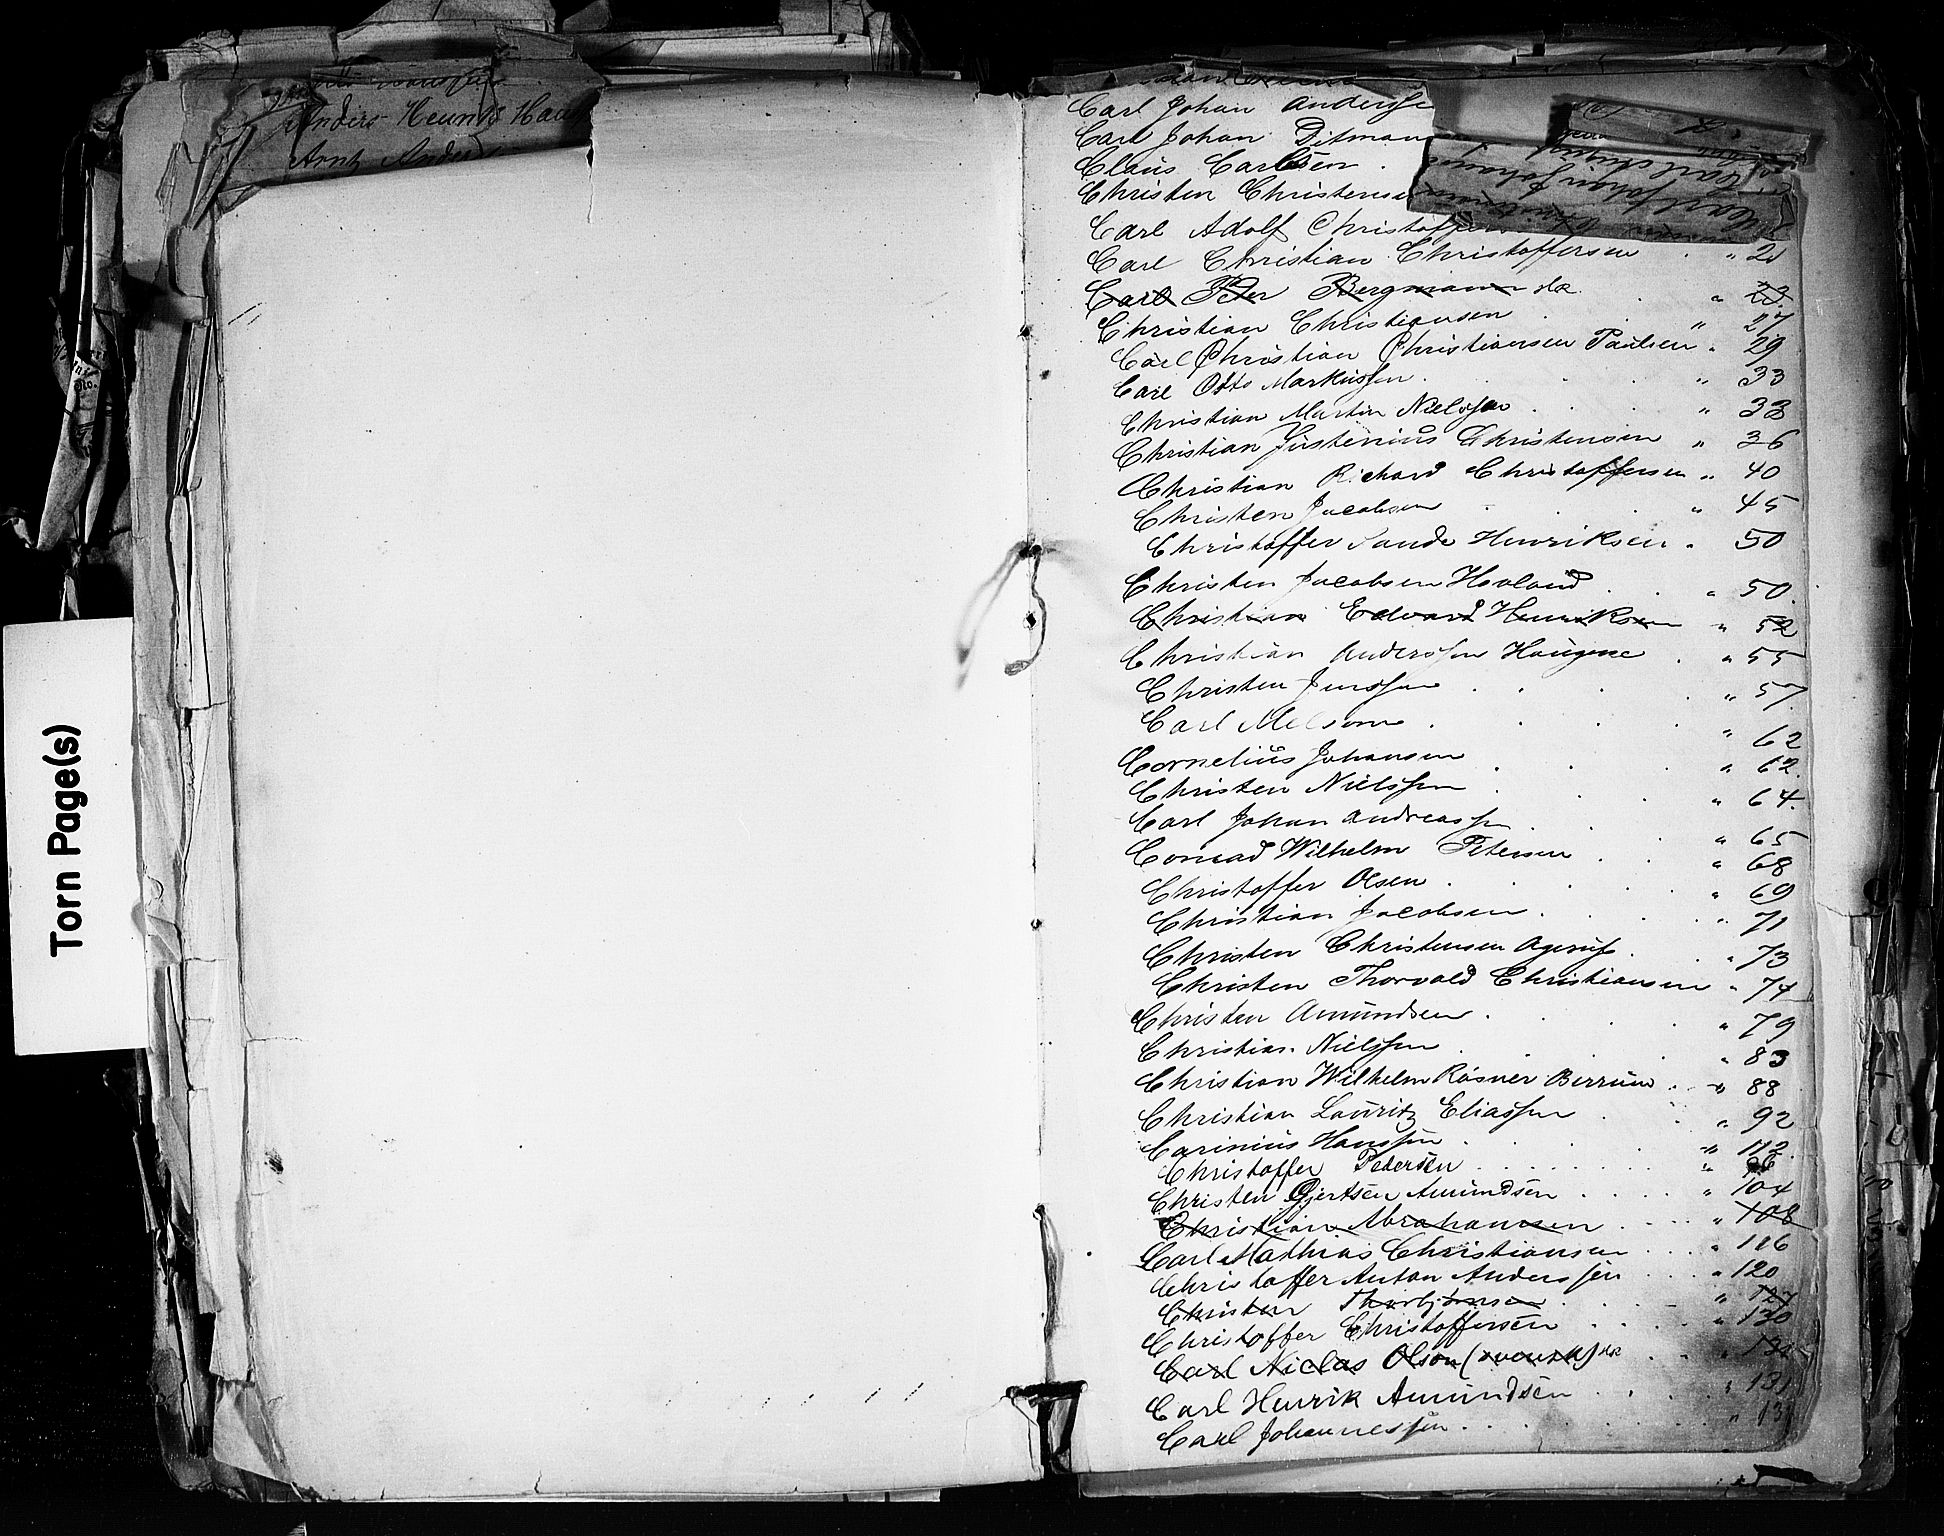 Anders Hennk
Arnts Anders
Torn Page(s)
Carl Johan Anderse
Carl Johan Ditman
Claüs Carlsen
Christen Christens
Carl Adolf Christoffers
Carl Christian Christoffersen " 21
Carl Peter Bergmann " 23
Christian Christiansen " 27
Carl Christian Christiansen Paulsen " 29
Carl Otto Markussen " 33
Christian Martin Nielssen " 33
Christian Jüstinius Christensen " 36
Christian Richard Christoffersen " 40
Christen Jacobsen " 45
Christoffer Sande Henriksen " 50
Christen Jacobsen Hovland " 50
Christian Edvard Henriksen " 52
Christian Anderssen Haugene " 55
Christen Jenssen " 57
Carl Melsom " 62
Cornelius Johansen " 62
Christen Nielssen " 64
Carl Johan Andreassen " 65
Conrad Wilhelm Petersen " 68
Christoffer Olsen " 69
Christian Jacobsen " 71
Christen Christensen Agerup " 73
Christen Thorvald Christiansen " 74
Christen Amündsen " 79
Christian Nielssen " 83
Christian Wilhelm Rasner Berrüm " 88
Christian Lauritz Eliassen " 92
Carinius Hanssen " 112
Christoffer Petersen " 96
Christen Gjertsen Amündsen " 104
Christian Abrahamsen " 108
Carl Mathias Christiansen " 116
Christoffer Anton Anderssen " 120
Christen Thorbjørnsen " 127
Christoffer Christoffersen " 130
Carl Niclas Olson (svensk) " 131
Carl Henrik Amündsen " 131
Carl Johannessen " 13